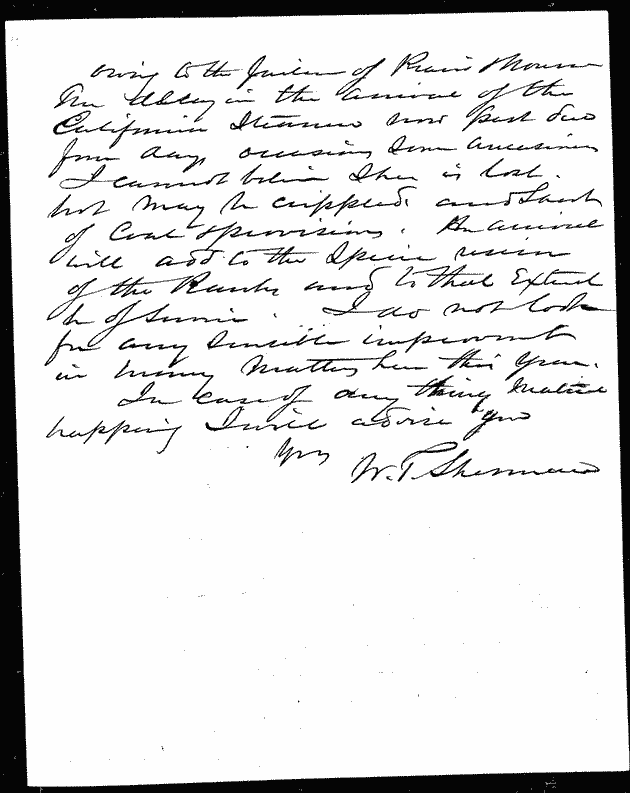 owing to the failure of Rain &
The delay in the arrival of the
California Steamer now past due
four days, occasions some uneasiness
I cannot believe Sher is lost.
but may be crippled, and Short
of Coal & provisions. An arrival
will add to the Specie reserve
of the Banks and to that Extent
be of Service. I do not look
for any Sensible improvemt
in money Matters here this year.
In case of any thing Material
happening I will advise you
Yrs
W. T. Sherman